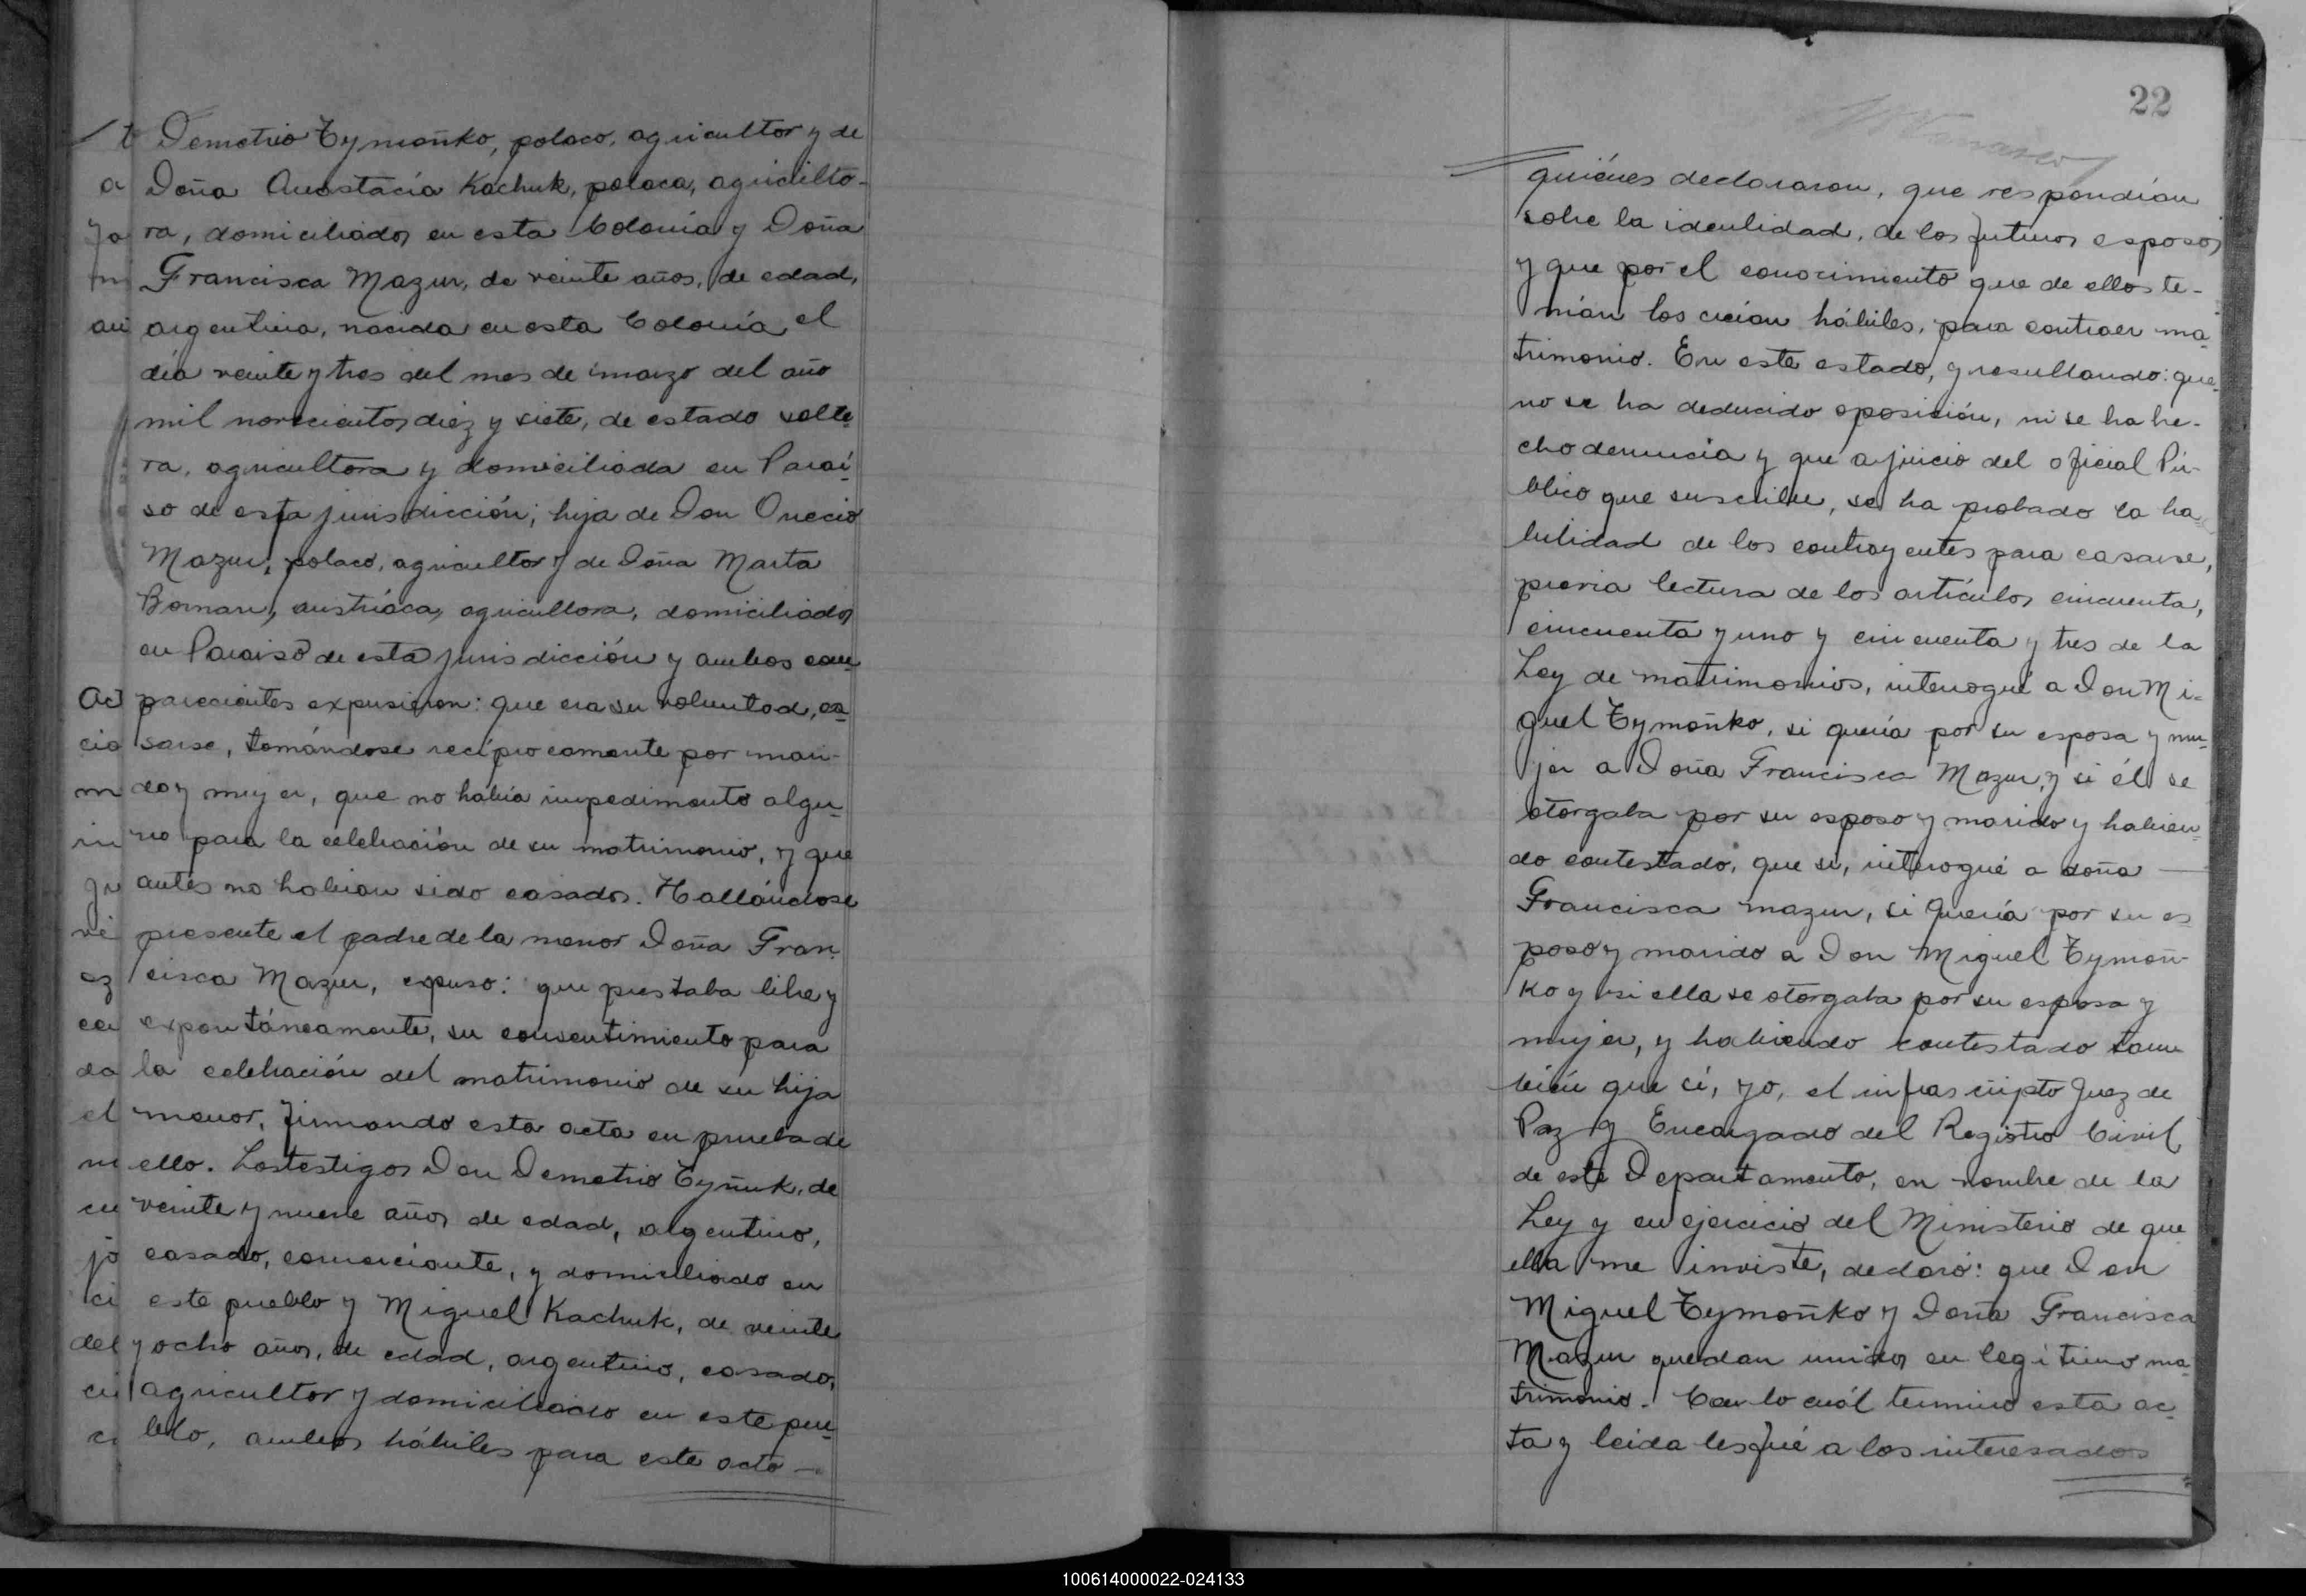 Demetrio Tymoñko, polaco, agricultor y de
Doña Anastacia Kachuk, polaca, agriculto-
ra, domiciliados en esta Colonia y Doña
Francisca Mazur, de veinte años, de edad,
argentina, nacida en esta Colonia, el
día veinte y tres del mes de marzo del año
mil novecientos diez y siete, de estado solte-
ra, agricultora y domiciliada en Paraí-
so de esta jurisdicción; hija de Don Onecio
Mazur, polaco, agricultor y de Doña Marta
austríaca, agricultora, domiciliados
en Paraiso de esta jurisdicción y ambos com-
parecientes expusieron: que era su voluntad, ca-
sarse, tomándose recíprocamente por mari-
do y mujer, que no había impedimento algu-
no para la celebración de su matrimonio, y que
antes no habían sido casados. Hallándose
presente el padre de la menor Doña Fran-
cisca Mazur, expuso: que prestaba libre y
expontáneamente, su consentimiento para
la celebración del matrimonio de su hija
menor, firmando esta acta en prueba de
ello. Los testigos Don Demetrio Tyñuk, de
veinte y nueve años de edad, argentino,
casado, comerciante, y domiciliado en
este pueblo y Miguel Kachuk, de veinte
y ocho años, de edad, argentino, casado,
agricultor y domiciliado en este pue-
blo, ambos hábiles para este acto —
22
quiénes declararon, que respondían
sobre la identidad, de los futuros esposos
y que por el conocimiento que de ellos te-
nían los creían hábiles, para contraer ma-
trimonio. En este estado, y resultando: que
no se ha deducido oposición, ni se ha he-
cho denuncia y que a juicio del oficial Pú-
blico que suscribe, se ha probado la ha-
bilidad de los contrayentes para casarse,
previa lectura de los artículos cincuenta,
cincuenta y uno y cincuenta y tres de la
Ley de matrimonios, interrogué a Don Mi-
guel Tymoñko, si quería por su esposa y mu-
jer a Doña Francisca Mazur, y si él se
otorgaba por su esposo y marido y habien-
do contestado, que si, interogué a doña —
Francisca Mazur, si quería por su es-
poso y marido a Don Miguel Tymoñ-
ko y si ella se otorgaba por su esposa y
mujer, y habiendo contestado tam
bién que sí, yo, el infrascripto Juez de
Paz y Encargado del Registro Civil
de este Departamento, en nombre de la
Ley y en ejercicio del Ministerio de que
ella me inviste, declaró: que Don
Miguel Tymoñko y Doña Francisca
Mazur quedan unidos en legítimo ma-
trimonio. Con lo cuál termino esta ac-
ta y leida les fué a los interesados
100614000022-024133